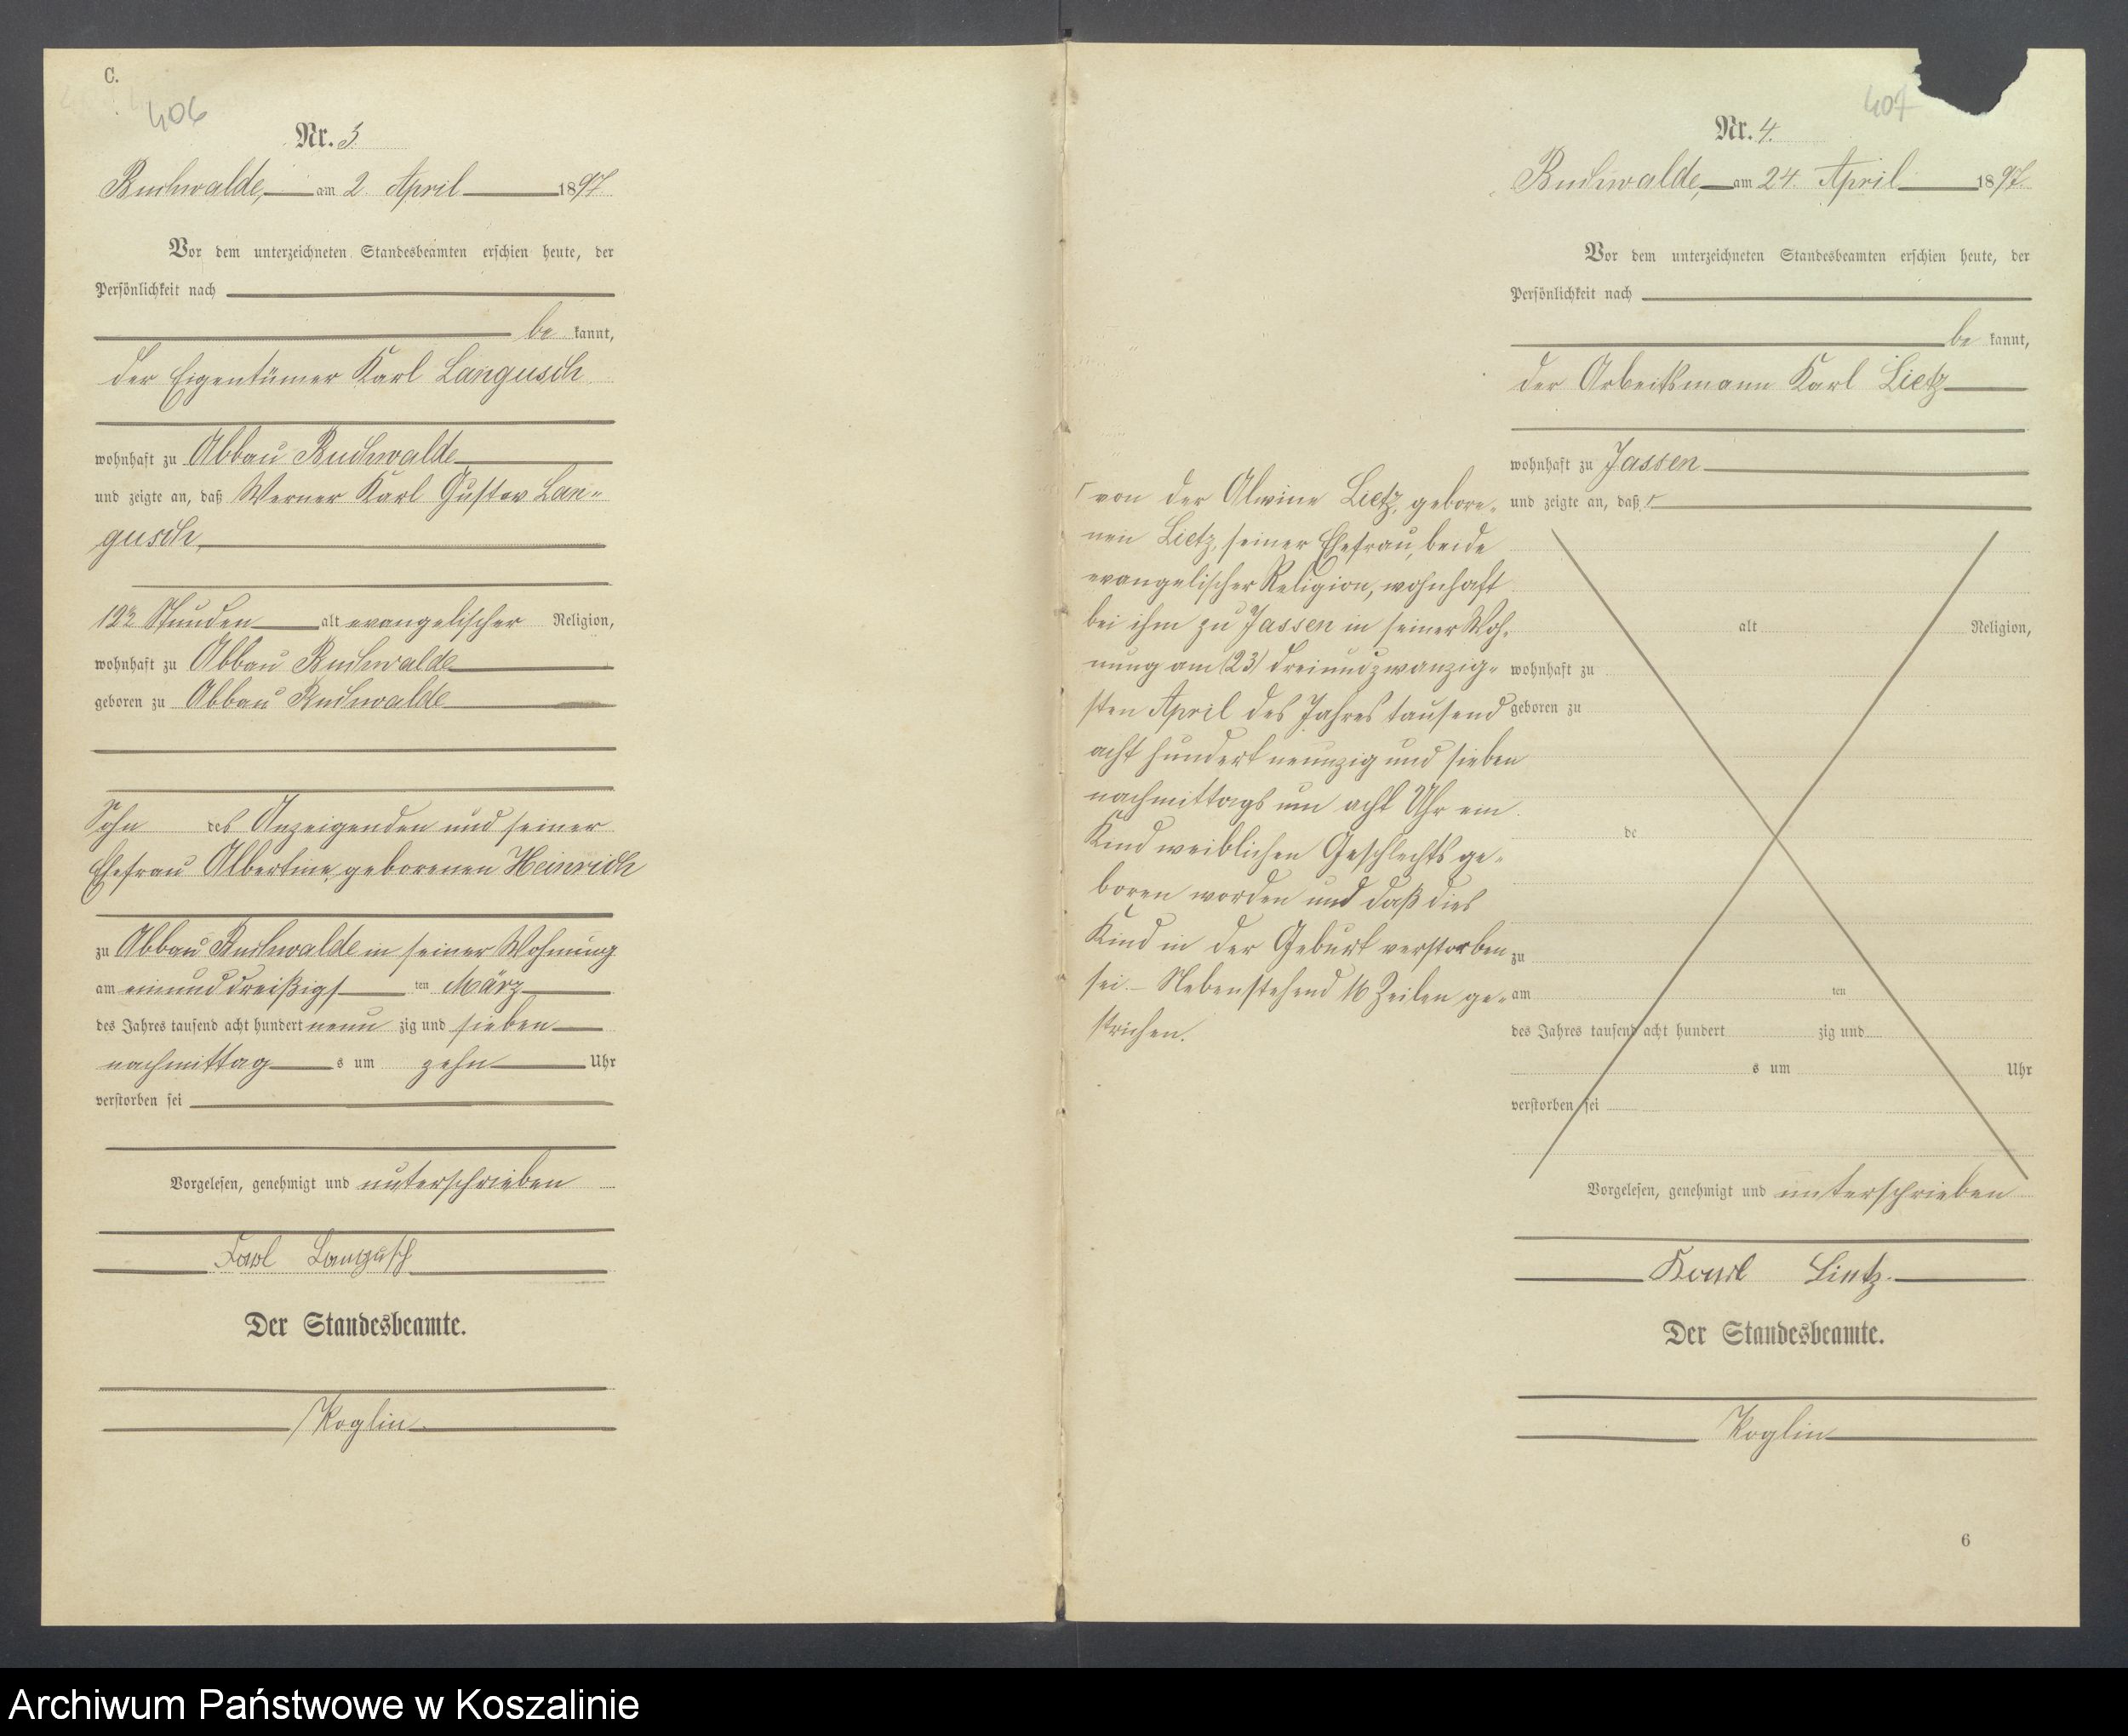 C.
406
Nr. 3.
Buchwalde, am 2. April 1897.
Vor dem unterzeichneten Standesbeamten erschien heute, der
Persönlichkeit nach
be kannt,
der Eigentümer Karl Langusch
wohnhaft zu Abbau Buchwalde
und zeigte an, daß Werner Karl Gustav Lan-
gusch,
12½ Stunden alt evangelischer Religion,
wohnhaft zu Abbau Buchwalde
geboren zu Abbau Buchwalde
Sohn des Anzeigenden und seiner
Ehefrau Albertine, geborenen Heinrich
zu Abbau Buchwalde in seiner Wohnung
am einunddreißigs ten März
des Jahres tausend acht hundert neun zig und sieben
nachmittag s um zehn Uhr
verstorben sei
Vorgelesen, genehmigt und unterschrieben
Karl Langusch
Der Standesbeamte.
Koglin
407
Nr. 4.
Buchwalde, am 24. April 1897.
Vor dem unterzeichneten Standesbeamten erschien heute, der
Persönlichkeit nach
be kannt,
der Arbeitsmann Karl Lietz
wohnhaft zu Jassen
und zeigte an, daß Γ
Γ von der Alwine Lietz, gebore-
nen Lietz, seiner Ehefrau, beide
evangelischer Religion, wohnhaft
bei ihm zu Jassen in seiner Woh-
nung am (23) dreiundzwanzig-
sten April des Jahres tausend
acht hundert neunzig und sieben
nachmittags um acht Uhr ein
Kind weiblichen Geschlechts ge-
boren worden und daß dies
Kind in der Geburt verstorben
sei. - Nebenstehend 16 Zeilen ge-
strichen.
alt Religion,
wohnhaft zu
geboren zu
de
zu
am ten
des Jahres tausend acht hundert zig und
s um Uhr
verstorben sei
Vorgelesen, genehmigt und unterschrieben
Karl Lietz.
Der Standesbeamte.
Koglin
6
Archiwum Państwowe w Koszalinie